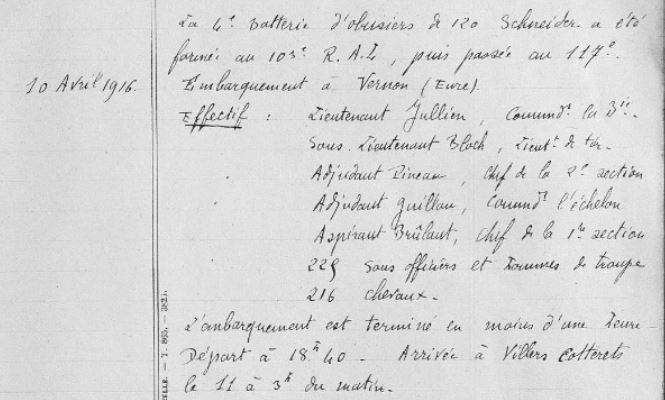 La 4e Batterie d'obusiers de 120 Schneider a été
formée au 103e R.A.L, puis passée au 117e.
10 Avril 1916. Embarquement à Vernon (Eure).
Effectif : Lieutenant Jullien, Commdt la Bie.
Sous. Lieutenant Bloch, Lieutt de tir.
Adjudant Pineau, Chef de la 2e section
Adjudant Guillou, Commdt l'échelon
Aspirant Brûlant, Chef de la 1re section
229 Sous officiers et Hommes de troupe
216 chevaux.
L'embarquement est terminé en moins d'une heure.
Départ à 18h40 - Arrivée à Villers Cotterets
le 11 à 3h du matin.
T. 865. — 382.